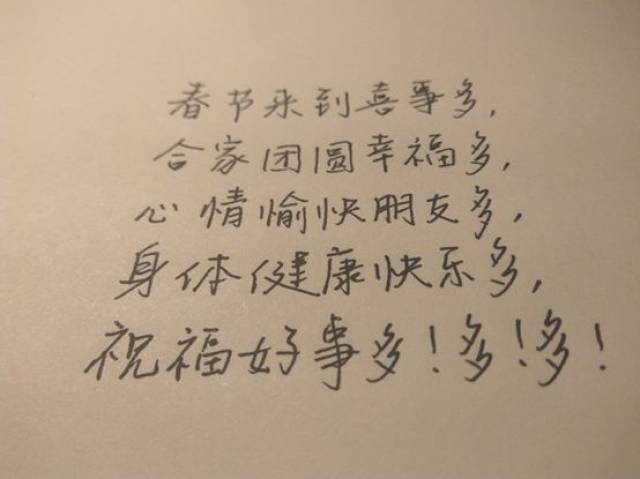 春节来到喜事多,
合家团圆幸福多,
心情愉快朋友多,
身体健康快乐多,
祝福好事多!多!多!